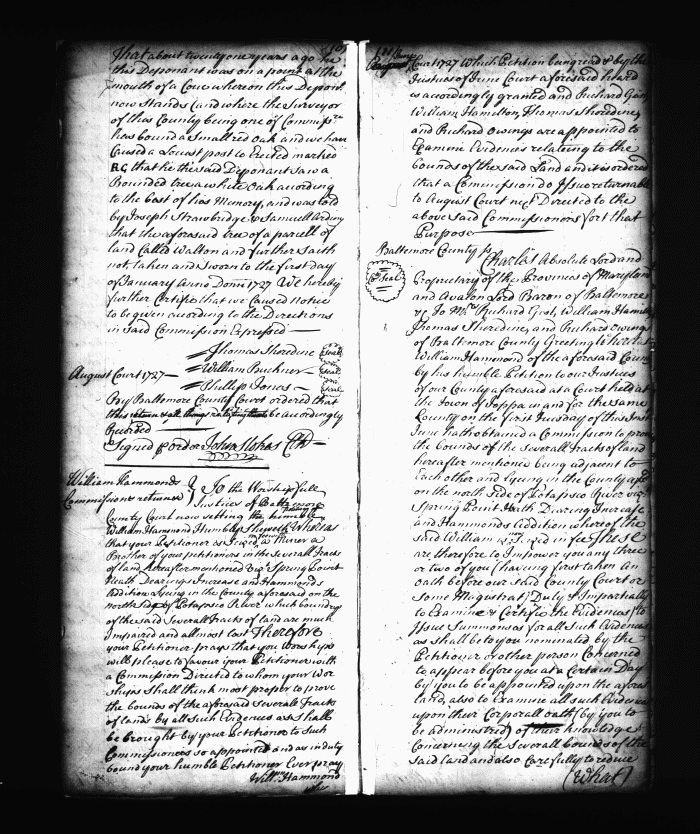 That about twenty one years ago he
this Deponant was on a point at the
mouth of a Cove whereon this Depont
now Stands (and where the Surveyor
of this County being one of Commissrs
has bound a Small red Oak and we have
Caused a Locust post to Erected marked
RG that he the said Deponant Saw a
Bounded tree a white Oak according
to the best of his Memory, and was told
by Joseph Strawbridge & Samuell
that the aforesaid tree of a parcell of
land Called Walton and further Saith
not, taken and Sworn to the first day
of January Anno Domi 1727 We hereby
further Certifie that we Caused notice
to be given according to the Directions
in Said Commission Expressed
Thomas Sheredine Seal
William Buckner Seal
Phillip Jones Seal
August Court 1727
By Baltemore County Court ordered that
this return & all things relating be accordingly
Recorded
Signed p order John Stokes Clk
William Hammonds
Commissions returned
To the Worshipfull
Justices of Baltemore
County Court now sitting the humble Petition of
William Hammond Humbly Sheweth Whereas
that your Petitioner is Seized in fee in Manner a
Brother of your petitioners in the Severall Tracts
of land hereafter mentioned viz Spring Point
Heath Dearings Increase and Hammonds
Addition Lying in the County aforesaid on the
north Side of Potapsco River which boundrys
of the said Severall Tracts of land are much
Impaired and allmost lost Therefore
your Petitioner prays that you worships
will please to favour your Petitioner with
a Commission Directed to whom your Wor
ships Shall think most proper to prove
the bounds of the aforesaid Severall Tracts
of lands by all Such Evidences as Shall
be brought by your Petitioner to Such
Commissioners so appointed and as in duty
bound your humble Petitioner Ever pray
Willm Hammond
Court 1727 Which Petition being read & by the
Justices of June Court aforesaid heard
is accordingly granted and Richard Gist
William Hamilton Thomas Sheredine
and Richard Owings are appointed to
Examine Evidences relating to the
bounds of the said Land and it is ordered
that a Commission do Issue returnable
to August Court next Directed to the
above said Commissioners for that
Purpose
Baltemore County ss
Charles Absolute Lord and
Co Seal
Proprietary of the Provinces of Maryland
and Avalon Lord Baron of Baltemore
&c To Mrs Richard Gist, William Hamilt
Thomas Sheredine, and Richard Owings
of Baltemore County Greeting Whereas
William Hammond of the aforesaid County
by his humble Petition to our Justices
of our County aforesaid at a Court held at
the Town of Joppa in and for the same
County on the first Tuesday of this Inst
June hath obtained a Commission to prove
the bounds of the Severall Tracts of land
hereafter mentioned being adjacent to
Each other and Lying in the County aforesd
on the north Side of Potapsco River viz
Spring Point Heath Dearing Increase
and Hammonds Addition whereof the
said William is Seized in fee These
are therefore to Impower you any three
or two of you (having first taken An
oath before our said County Court or
Some Magistrate) Duly & Impartially
to Examine & Certifie the Evidences, to
Issue Summonses for all Such Evidences
as Shall be to you nominated by the
Petitioner or other person Concerned
to appear before you at a Certain Day
by you to be appointed upon the aforesd
land, also to Examine all Such Evidences
upon their Corporall oath (by you to
be administred) of their knowledge
Concerning the Severall bounds of the
Said land and also Carefully to reduce
(What)